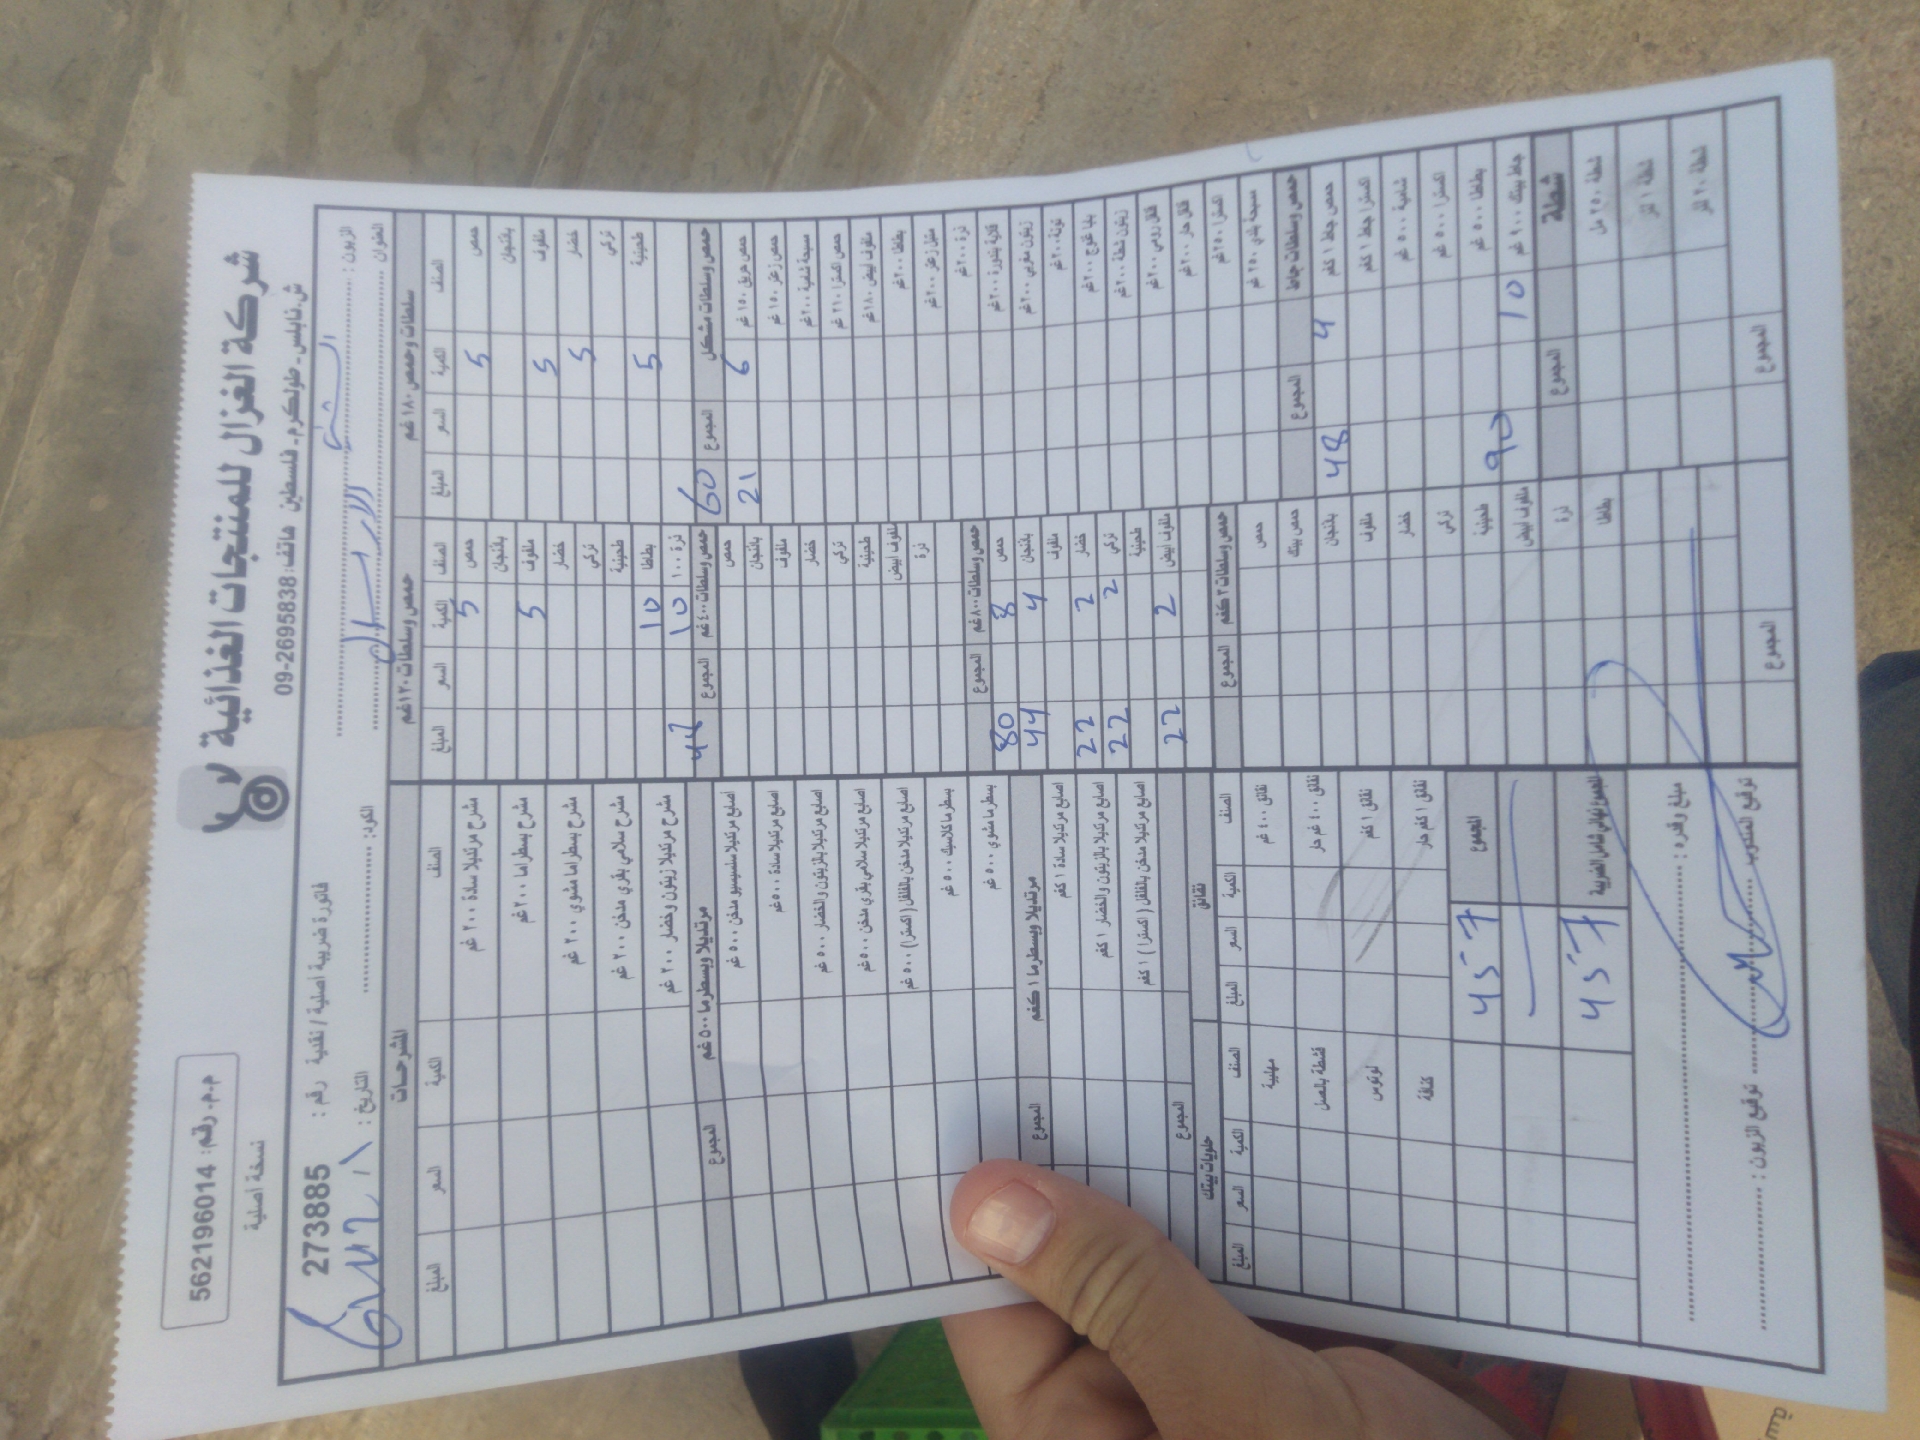 شركة الغزال للمنتجات الغذائية
ش.نابلس - طولكرم - فلسطين هاتف: 09-2695838
م.م. رقم: 562196014
نسخة أصلية
فاتورة ضريبية أصلية / نقدية رقم: 273885
الزبون:
العنوان
الكود:
التاريخ:
سلطات وحمص ١٨٠ غم
الصنف الكمية السعر المبلغ
حمص 5
باذنجان
ملفوف 5
خضار 5
تركي
طحينية 5
حمص وسلطات مشكل المجموع 60
حمص حريق ١٥٠ غم 6 21
حمص زعتر ١٥٠ غم
مسبحة شامية ٢٠٠ غم
حمص اكسترا ٢١٠ غم
ملفوف ابيض ١٨٠ غم
بطاطا ٢٠٠ غم
متبل زعتر ٢٠٠ غم
ذرة ٢٠٠ غم
قلاية بندورة ٢٠٠ غم
زيتون مغربي ٢٠٠ غم
تونة ٢٠٠ غم
بابا غنوج ٢٠٠ غم
زيتون شطة ٢٠٠ غم
فلفل رومي ٢٠٠ غم
فلفل حار ٢٠٠ غم
اكسترا ٢٥٠ غم
مسبحة بلدي ٢٥٠ غم
حمص وسلطات جاط المجموع
حمص جاط ١ كغم 4 48
اكسترا جاط ١ كغم
شامية ٥٠٠ غم
اكسترا ٥٠٠ غم
بطاطا ٥٠٠ غم
جاط بيتك ٩٠٠ غم 10 90
شطة المجموع
شطة ٢٥٠ مل
شطة ١ لتر
شطة ٢٠ لتر
المجموع
حمص وسلطات ١٢٠ غم
الصنف الكمية السعر المبلغ
حمص 5
باذنجان
ملفوف 5
خضار
تركي
طحينية
بطاطا 10
ذرة ١٠٠ 10
حمص وسلطات ٤٠٠ غم المجموع
حمص
باذنجان
ملفوف
خضار
تركي
طحينية
ملفوف ابيض
ذرة
حمص وسلطات ٨٠٠ غم المجموع
حمص 8 80
باذنجان 4 44
ملفوف
خضار 2 22
تركي 2 22
طحينية
ملفوف ابيض 2 22
حمص وسلطات ٣ كغم المجموع
حمص
حمص بيتك
باذنجان
ملفوف
خضار
تركي
طحينية
ملفوف ابيض
ذرة
بطاطا
المجموع
المشرحات
الصنف الكمية السعر المبلغ
مشرح مرتديلا سادة ٢٠٠ غم
مشرح بسطرما ٢٠٠ غم
مشرح بسطراما مشوي ٢٠٠ غم
مشرح سلامي بقري مدخن ٢٠٠ غم
مشرح مرتديلا زيتون وخضار ٢٠٠ غم
مرتديلا وبسطرما ٥٠٠ غم المجموع
اصابع مرتديلا سلسيسيو مدخن ٥٠٠ غم
اصابع مرتديلا سادة ٥٠٠ غم
اصابع مرتديلا بالزيتون والخضار ٥٠٠ غم
اصابع مرتديلا سلامي بقري مدخن ٥٠٠ غم
اصابع مرتديلا مدخن بالفلفل (اكسترا) ٥٠٠ غم
بسطرما كلاسيك ٥٠٠ غم
بسطرما مشوي ٥٠٠ غم
مرتديلا وبسطرما ١ كغم المجموع
اصابع مرتديلا سادة ١ كغم
اصابع مرتديلا بالزيتون والخضار ١ كغم
اصابع مرتديلا مدخن بالفلفل (اكسترا) ١ كغم
المجموع
نقانق
الصنف الكمية السعر المبلغ
نقانق ٤٠٠ غم
نقانق ٤٠٠ غم حار
نقانق ١ كغم
نقانق ١ كغم حار
حلويات بيتك
الصنف الكمية السعر المبلغ
مهلبية
قشطة بالعسل
لوتوس
كنافة
المجموع 457
المجموع نهائي شامل الضريبة 457
مبلغ وقدره:
توقيع المندوب
توقيع الزبون: